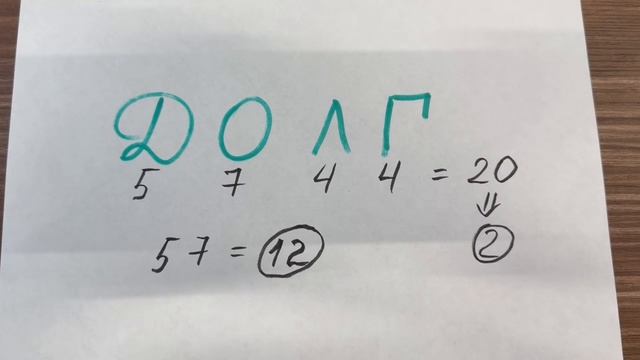 ДОЛГ
5 7 4 4 = 20
⇓
57 = 12 2